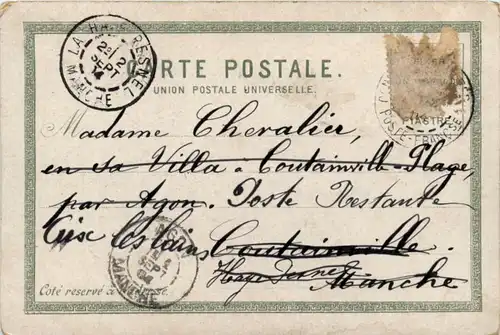 LA HAYE-PESNEL
MANCHE
CARTE POSTALE.
UNION POSTALE UNIVERSELLE.
PIASTRE
POSTE FRANÇSE
Madame Chevalier,
en sa Villa à Coutainville-Plage,
par Agon. Poste Restante
Aix les bains Coutainville.
Haye Pesnel Manche
MANCHE
Coté reservé